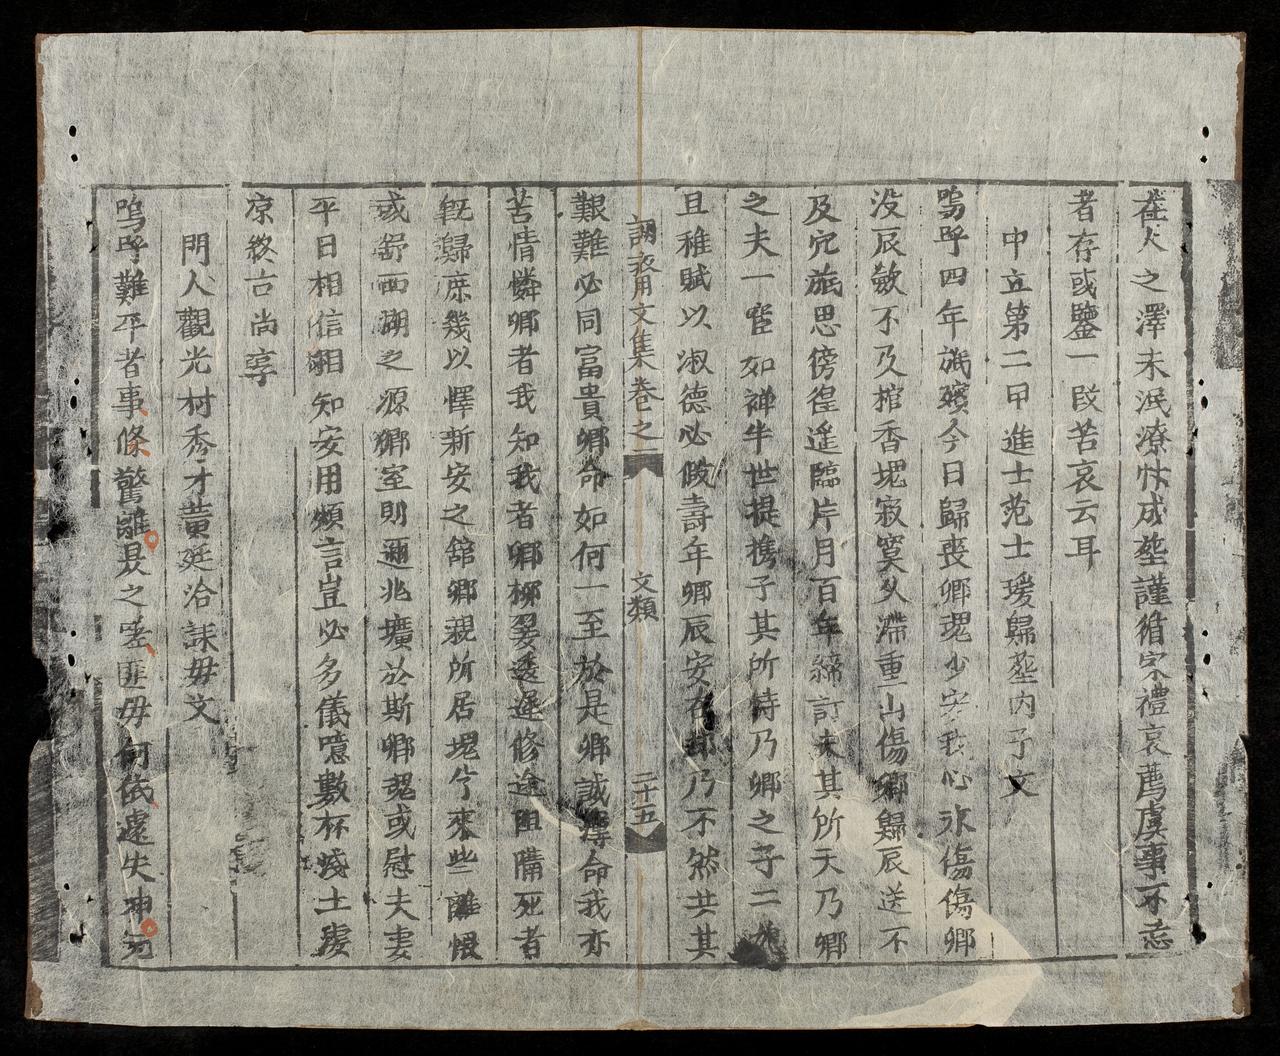 在人之澤未泯潦忕成塋謹循宋禮哀薦虞事不忘
者存或鑒一段苦哀云耳
中立第二甲進士范士瑗歸塟内子文
嗚呼四年旅殯今日歸喪卿魂少安我心永傷傷卿
没辰斂不及棺香塊寂寞久滯重山傷卿歸辰送不
及穴旅思徬徨遙臨片月百年締訂夫其所天乃卿
之夫一窀如禅半世提携子其所恃乃卿之子二
且稚賦以淑德必假壽年卿辰安在乃不然共其
詞衣用文集卷之一 文類 二十五
艱難必同富貴卿命如何一至於是卿誠薄命我亦
苦情憐卿者我知我者卿柳翣透遲修途阻備死者
既歸庶幾以懌新安之舘卿親所居塊兮來些誰恨
或舒西湖之源卿室則邇兆壙於斯卿魂或慰夫妻
平日相信相知安用頻言豈必多儀噫數杯淺土淒
凉終古尚享
門人觀光村秀才黄廷洽誄毋文
嗚呼難平者事條驚離是之峑匪毋何依遽失坤